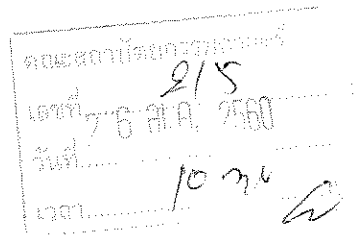 คณะสถาปัตยกรรมศาสตร์
เลขที่ 215
วันที่ 26 ส.ค. 2560
เวลา 10